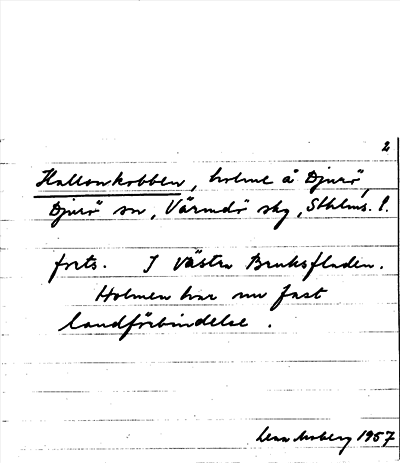 2
Hallonkobben, holme å Djurö,
Djurö sn, Värmdö skg, Sthlms. l.
forts. I västra Bruksfladen.
Holmen har nu fast
landförbindelse.
Moberg 1957